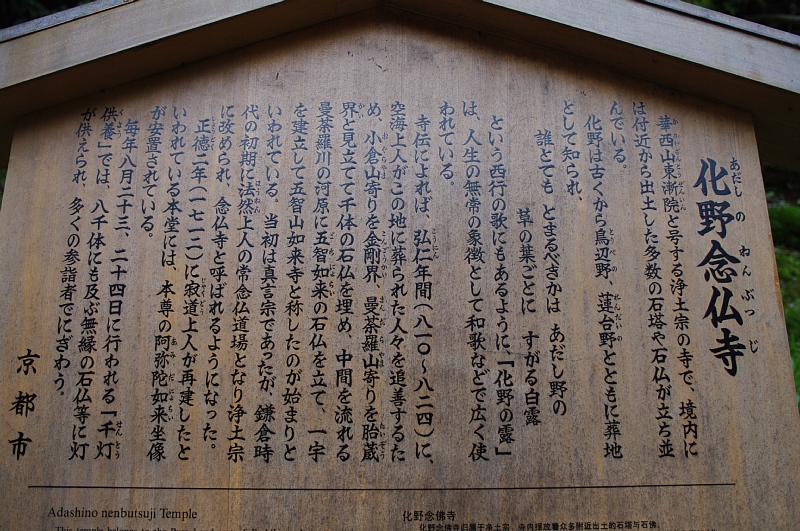 化野念仏寺
華西山東漸院と号する浄土宗の寺で、境内に
は付近から出土した多数の石塔や石仏が立ち並
んでいる。
化野は古くから鳥辺野、蓮台野とともに葬地
として知られ、
誰とても とまるべきかは あだし野の
草の葉ごとに すがる白露
という西行の歌にもあるように、「化野の露」
は、人生の無常の象徴として和歌などで広く使
われている。
寺伝によれば、弘仁年間(八一〇~八二四)に、
空海上人がこの地に葬られた人々を追善するた
め、小倉山寄りを金剛界、曼荼羅山寄りを胎蔵
界と見立てて千体の石仏を埋め、中間を流れる
曼荼羅川の河原に五智如来の石仏を立て、一宇
を建立して五智山如来寺と称したのが始まりと
いわれている。当初は真言宗であったが、鎌倉時
代の初期に法然上人の常念仏道場となり浄土宗
に改められ、念仏寺と呼ばれるようになった。
正徳二年(一七一二)に寂道上人が再建したと
いわれている本堂には、本尊の阿弥陀如来坐像
が安置されている。
毎年八月二十三、二十四日に行われる「千灯
供養」では、八千体にも及ぶ無縁の石仏等に灯
が供えられ、多くの参詣者でにぎわう。
京都市
Adashino nenbutsuji Temple
This temple belongs to the
化野念佛寺
化野念佛寺归属于净土宗。寺内摆放着众多附近出土的石塔与石佛。